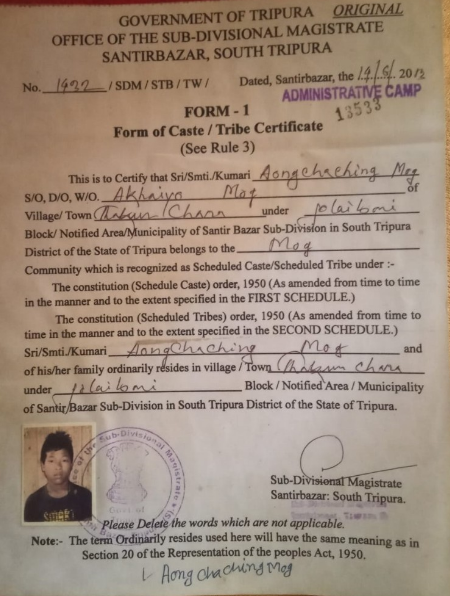 GOVERNMENT OF TRIPURA ORIGINAL
OFFICE OF THE SUB-DIVISIONAL MAGISTRATE
SANTIRBAZAR, SOUTH TRIPURA
No. 1922 / SDM / STB / TW / Dated, Santirbazar, the 19/6/ 2012
ADMINISTRATIVE CAMP
13533
FORM - 1
Form of Caste / Tribe Certificate
(See Rule 3)
This is to Certify that Sri/Smti./Kumari Aongchaching Mog
S/O, D/O, W/O. Akhaiya Mog of
Village/ Town Thakur Chara under Jolaibari
Block/ Notified Area/Municipality of Santir Bazar Sub-Division in South Tripura
District of the State of Tripura belongs to the Mog
Community which is recognized as Scheduled Caste/Scheduled Tribe under :-
The constitution (Schedule Caste) order, 1950 (As amended from time to time
in the manner and to the extent specified in the FIRST SCHEDULE.)
The constitution (Scheduled Tribes) order, 1950 (As amended from time to
time in the manner and to the extent specified in the SECOND SCHEDULE.)
Sri/Smti./Kumari AongChaching Mog and
of his/her family ordinarily resides in village / Town Thakur Chara
under Jolaibari Block / Notified Area / Municipality
of Santir/Bazar Sub-Division in South Tripura District of the State of Tripura.
of the Sub-Divisional Magistrate
Sub-Divisional Magistrate
Santirbazar: South Tripura.
Please Delete the words which are not applicable.
Note:- The term Ordinarily resides used here will have the same meaning as in
Section 20 of the Representation of the peoples Act, 1950.
Aongchaching Mog